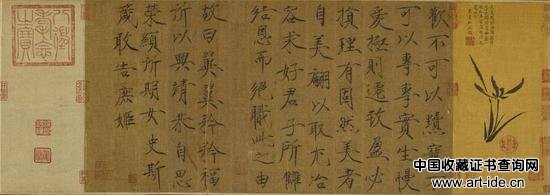 歡不可以黷寵不
可以專專實生慢
愛極則遷致盈必
損理有固然美者
自美翩以取尤冶
容求好君子所讎
結恩而絕職此之由
故曰翼翼矜矜福
所以興靖恭自思
榮顯所期女史斯
箴敢告庶姬
中国收藏证书查询网
www.art-ide.cn